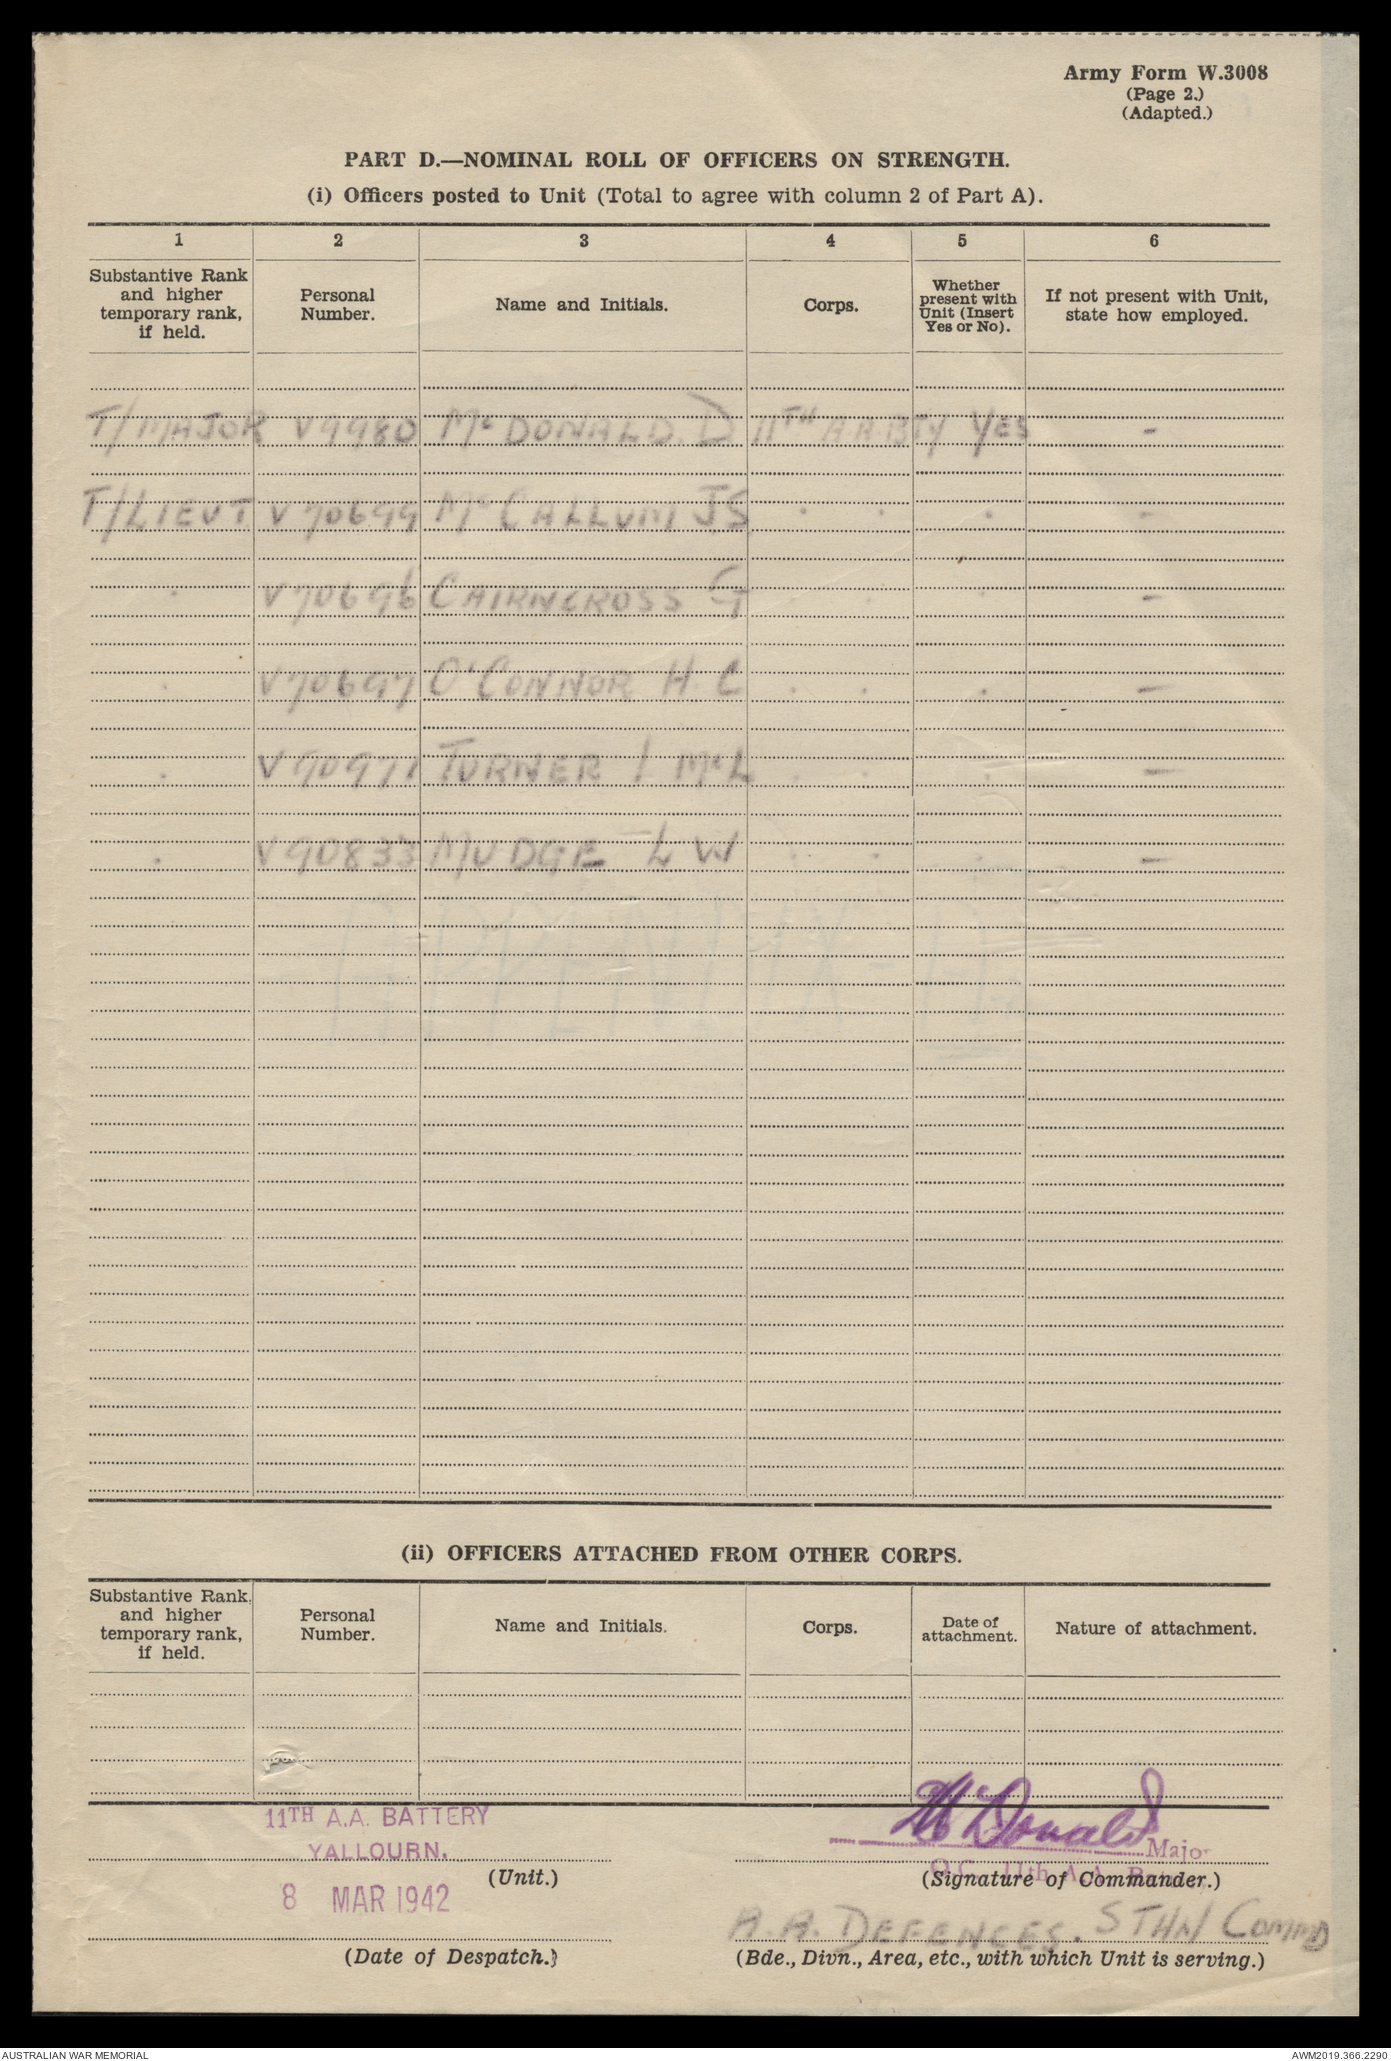 Army Form W.3008
(Page 2.)
(Adapted.)
PART D.—NOMINAL ROLL OF OFFICERS ON STRENGTH.
(i) Officers posted to Unit (Total to agree with column 2 of Part A).
1 2 3 4 5 6
Substantive Rank and higher temporary rank, if held. Personal Number. Name and Initials. Corps. Whether present with Unit (Insert Yes or No). If not present with Unit, state how employed.
T/MAJOR V9980 McDONALD. D 11TH A A. BTY YES -
T/LIEUT V70699 McCALLUM JS . . . -
. V70696 CAIRNCROSS G . . . -
. V70697 O'CONNOR H. C . . . -
. V90971 TURNER I McL . . . -
. V90833 MUDGE L W . . . -
(ii) OFFICERS ATTACHED FROM OTHER CORPS.
Substantive Rank, and higher temporary rank, if held. Personal Number. Name and Initials. Corps. Date of attachment. Nature of attachment.
11TH A.A. BATTERY
YALLOURN.
(Unit.)
8 MAR 1942
(Date of Despatch.)
McDonald Major
O.C. 11th A.A.
(Signature of Commander.)
A.A. DEFENCES. STHN COMMD
(Bde., Divn., Area, etc., with which Unit is serving.)
AUSTRALIAN WAR MEMORIAL
AWM2019.366.2290